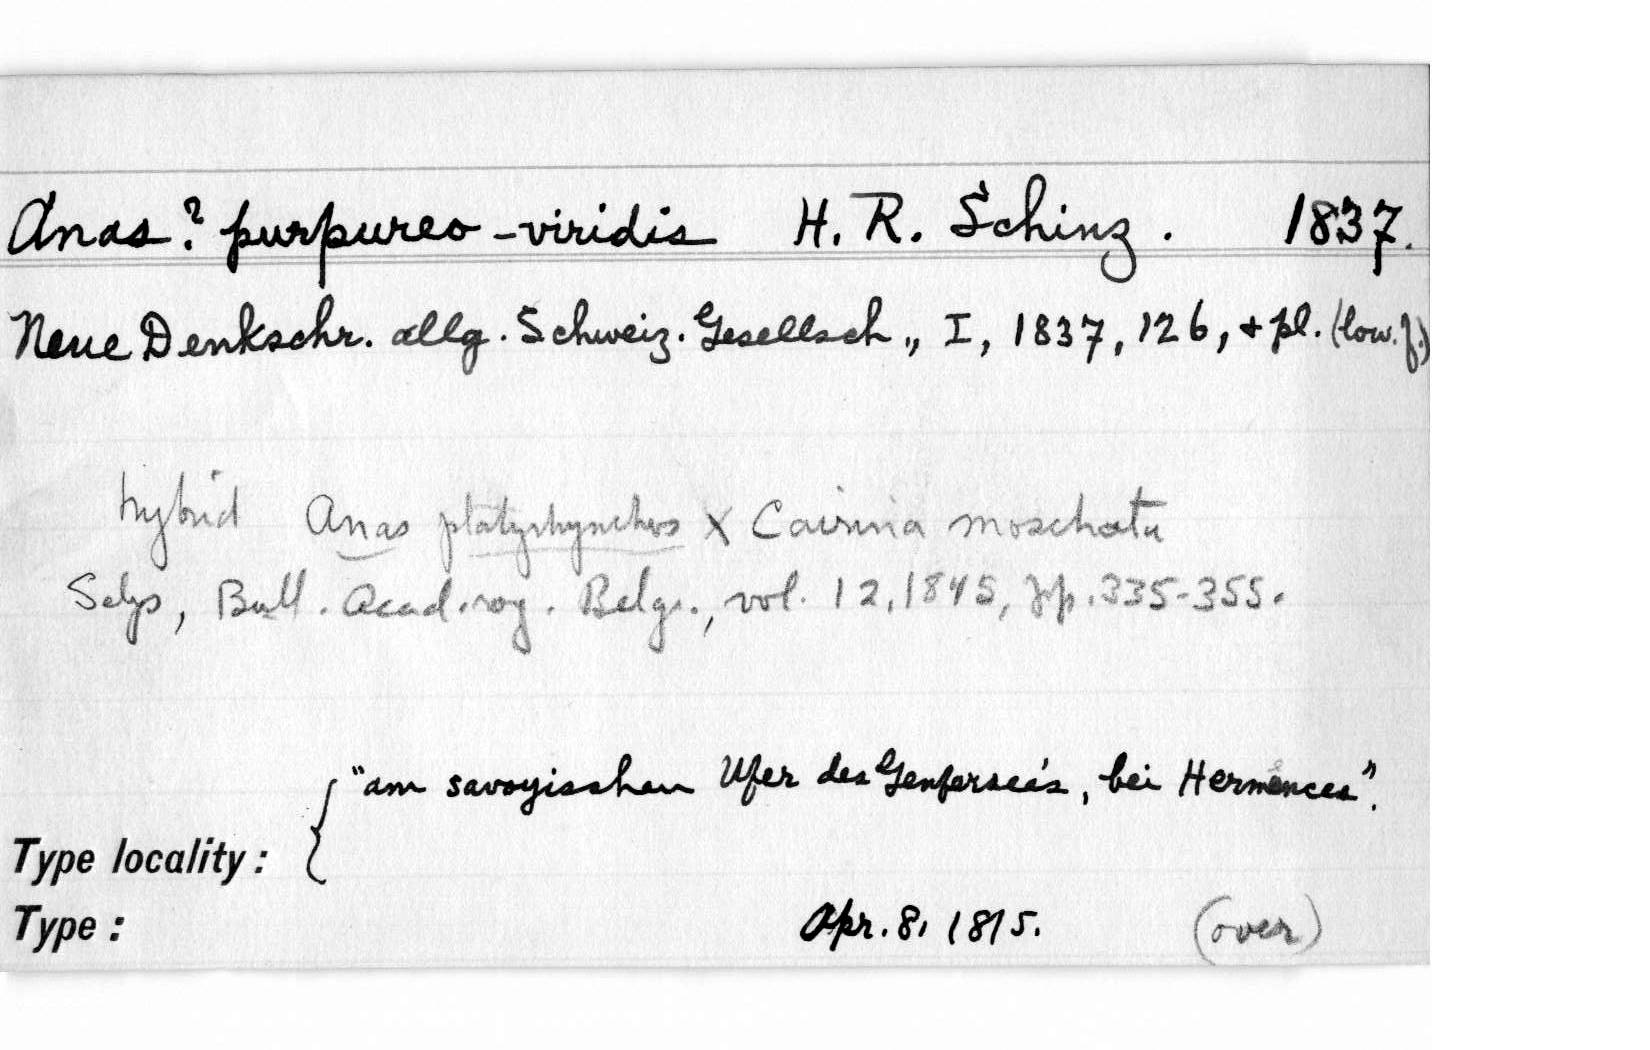 Anas? purpureo-viridis H. R. Schinz. 1837.
Neue Denkschr. allg. Schweiz. Gesellsch., I, 1837, 126, + pl. (low. f.)
hybrid Anas platyrhynchos X Cairina moschata
Selys, Bull. Acad. roy. Belg., vol. 12, 1845, pp. 335-355.
"am savoyischen Ufer des Genfersee's, bei Hermences".
Type locality: {
Type: Apr. 8, 1815. (over)